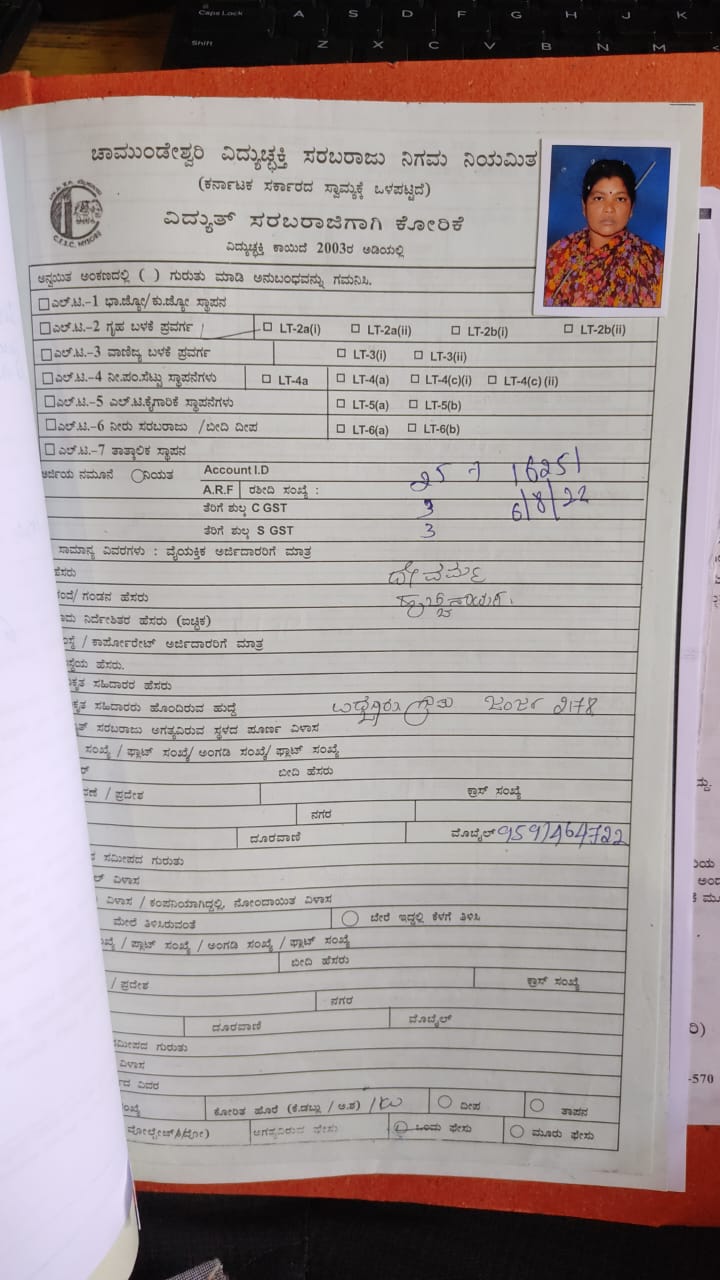 ಚಾಮುಂಡೇಶ್ವರಿ ವಿದ್ಯುಚ್ಛಕ್ತಿ ಸರಬರಾಜು ನಿಗಮ ನಿಯಮಿತ
(ಕರ್ನಾಟಕ ಸರ್ಕಾರದ ಸ್ವಾಮ್ಯಕ್ಕೆ ಒಳಪಟ್ಟಿದೆ)
ವಿದ್ಯುತ್ ಸರಬರಾಜಿಗಾಗಿ ಕೋರಿಕೆ
C.E.S.C. MYSORE
ವಿದ್ಯುಚ್ಛಕ್ತಿ ಕಾಯಿದೆ 2003ರ ಅಡಿಯಲ್ಲಿ
ಅನ್ವಯಿತ ಅಂಕಣದಲ್ಲಿ ( ) ಗುರುತು ಮಾಡಿ ಅನುಬಂಧವನ್ನು ಗಮನಿಸಿ.
ಎಲ್.ಟಿ.-1 ಭಾ.ಜ್ಯೋ/ಕು.ಜ್ಯೋ ಸ್ಥಾಪನ
ಎಲ್.ಟಿ.-2 ಗೃಹ ಬಳಕೆ ಪ್ರವರ್ಗ LT-2a(i) LT-2a(ii) LT-2b(i) LT-2b(ii)
ಎಲ್.ಟಿ.-3 ವಾಣಿಜ್ಯ ಬಳಕೆ ಪ್ರವರ್ಗ LT-3(i) LT-3(ii)
ಎಲ್.ಟಿ.-4 ನೀ.ಪಂ.ಸೆಟ್ಟು ಸ್ಥಾಪನೆಗಳು LT-4a LT-4(a) LT-4(c)(i) LT-4(c)(ii)
ಎಲ್.ಟಿ.-5 ಎಲ್.ಟಿ.ಕೈಗಾರಿಕೆ ಸ್ಥಾಪನೆಗಳು LT-5(a) LT-5(b)
ಎಲ್.ಟಿ.-6 ನೀರು ಸರಬರಾಜು /ಬೀದಿ ದೀಪ LT-6(a) LT-6(b)
ಎಲ್.ಟಿ.-7 ತಾತ್ಕಾಲಿಕ ಸ್ಥಾಪನ
ಅರ್ಜಿಯ ನಮೂನೆ ನಿಯತ Account I.D
A.R.F ರಶೀದಿ ಸಂಖ್ಯೆ : 16251
ತೆರಿಗೆ ಶುಲ್ಕ C GST 3 6/8/22
ತೆರಿಗೆ ಶುಲ್ಕ S GST 3
ಸಾಮಾನ್ಯ ವಿವರಗಳು : ವೈಯಕ್ತಿಕ ಅರ್ಜಿದಾರರಿಗೆ ಮಾತ್ರ
ಹೆಸರು ದೇವಮ್ಮ
ಗಂಡನ ಹೆಸರು
ನಿರ್ದೇಶಿತರ ಹೆಸರು (ಐಚ್ಛಿಕ)
/ ಕಾರ್ಪೋರೇಟ್ ಅರ್ಜಿದಾರರಿಗೆ ಮಾತ್ರ
ಹೆಸರು.
ಸಹಿದಾರರ ಹೆಸರು
ಸಹಿದಾರರು ಹೊಂದಿರುವ ಹುದ್ದೆ
ಸರಬರಾಜು ಅಗತ್ಯವಿರುವ ಸ್ಥಳದ ಪೂರ್ಣ ವಿಳಾಸ
ಸಂಖ್ಯೆ / ಫ್ಲಾಟ್ ಸಂಖ್ಯೆ/ ಅಂಗಡಿ ಸಂಖ್ಯೆ/ ಫ್ಲಾಟ್ ಸಂಖ್ಯೆ
ಬೀದಿ ಹೆಸರು
/ ಪ್ರದೇಶ ಕ್ರಾಸ್ ಸಂಖ್ಯೆ
ನಗರ
ದೂರವಾಣಿ ಮೊಬೈಲ್ 9591464722
ಸಮೀಪದ ಗುರುತು
ವಿಳಾಸ
ವಿಳಾಸ / ಕಂಪನಿಯಾಗಿದ್ದಲ್ಲಿ, ನೋಂದಾಯಿತ ವಿಳಾಸ
ಮೇಲೆ ತಿಳಿಸಿರುವಂತೆ ಬೇರೆ ಇದ್ದಲ್ಲಿ ಕೆಳಗೆ ತಿಳಿಸಿ
/ ಪ್ಲಾಟ್ ಸಂಖ್ಯೆ / ಅಂಗಡಿ ಸಂಖ್ಯೆ / ಫ್ಲಾಟ್ ಸಂಖ್ಯೆ
ಬೀದಿ ಹೆಸರು
/ ಪ್ರದೇಶ ಕ್ರಾಸ್ ಸಂಖ್ಯೆ
ನಗರ
ದೂರವಾಣಿ ಮೊಬೈಲ್
ಸಮೀಪದ ಗುರುತು
ವಿಳಾಸ
ವಿವರ
ಕೋರಿತ ಹೊರೆ (ಕೆ.ಡಬ್ಲು / ಅ.ಶ) ದೀಪ ತಾಪನ
ಅಗತ್ಯವಿರುವ ಫೇಸು ಒಂದು ಫೇಸು ಮೂರು ಫೇಸು
-570
Caps Lock A S D F G H J K
Shift Z X C V B N M